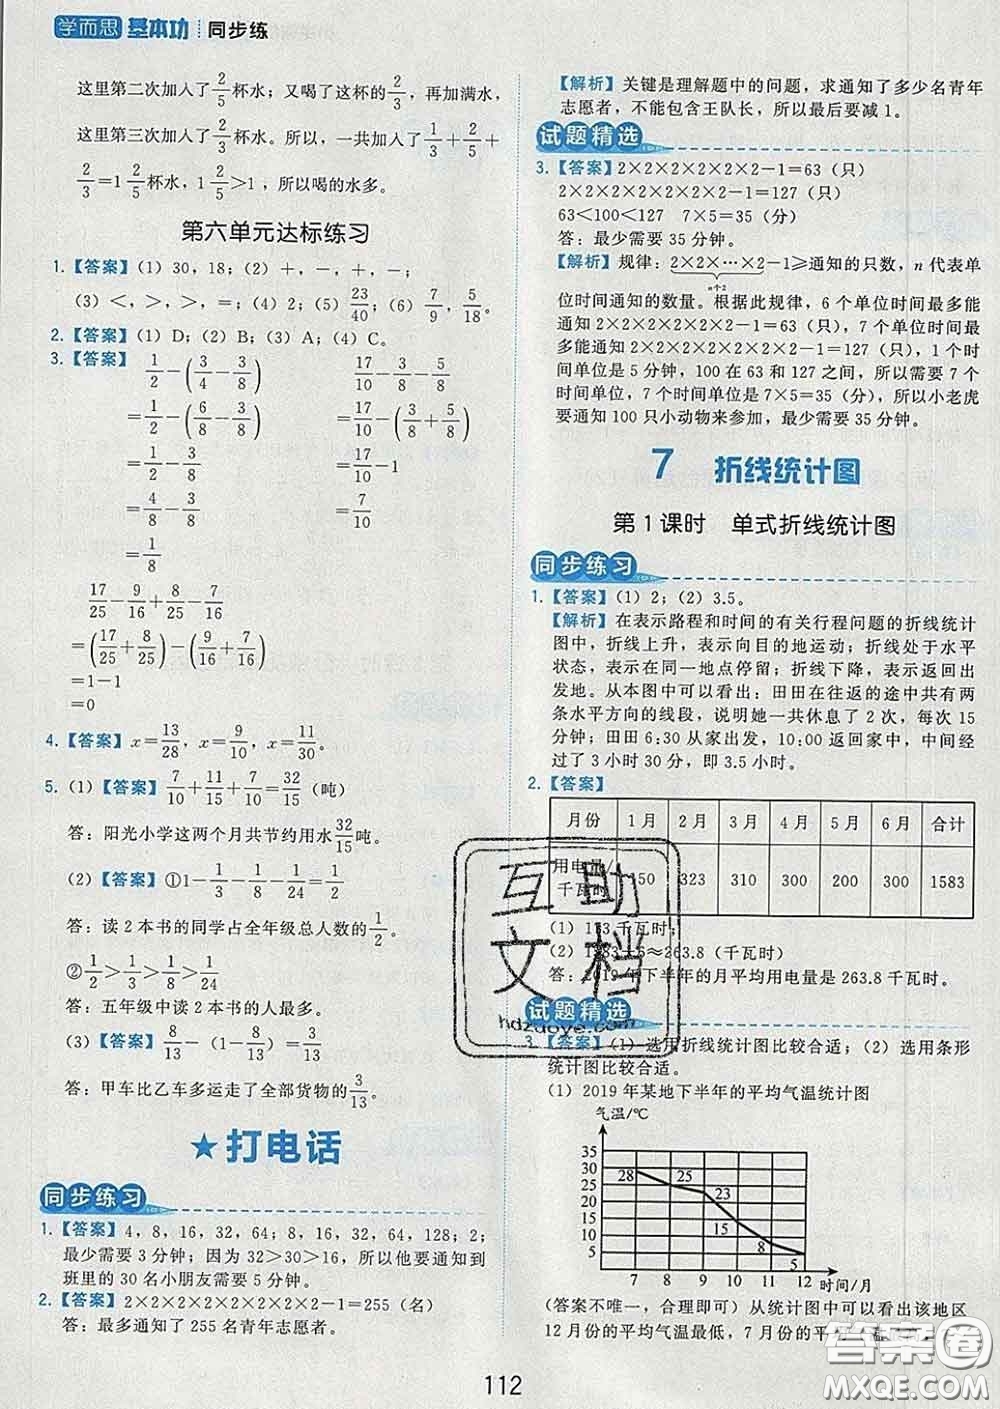 学而思 基本功 同步练
这里第二次加入了2/5杯水；又喝了这杯的2/3，再加满水，
这里第三次加入了2/3杯水。所以、一共加入了1/3+2/5+
2/3=1 2/5杯水，1 2/5>1，所以喝的水多。
第六单元达标练习
1.【答案】（1）30，18；（2）+，-，+，-；
（3）<，>，>，=；（4）2；（5）23/40；（6）7/9，5/18。
2.【答案】（1）D；（2）B；（3）A；（4）C。
3.【答案】 1/2-(3/4-3/8) 17/10-3/8-5/8
=1/2-(6/8-3/8) =17/10-(3/8+5/8)
=1/2-3/8 =17/10-1
=4/8-3/8 =7/10
=1/8
17/25-9/16+8/25-7/16
=(17/25+8/25)-(9/16+7/16)
=1-1
=0
4.【答案】x=13/28，x=9/10，x=11/30。
5.（1）【答案】7/10+11/15+7/10=32/15（吨）
答：阳光小学这两个月共节约用水32/15吨。
（2）【答案】①1-1/3-1/8-1/24=1/2
答：读2本书的同学占全年级总人数的1/2。
②1/2>1/3>1/8>1/24
答：五年级中读2本书的人最多。
（3）【答案】8/13-（1-8/13）=3/13
答：甲车比乙车多运走了全部货物的3/13。
★ 打电话
同步练习
1.【答案】4，8，16，32，64；8，16，32，64，128；2；
最少需要3分钟；因为32>30>16，所以他要通知到
班里的30名小朋友需要5分钟。
2.【答案】2×2×2×2×2×2×2×2-1=255（名）
答：最多通知了255名青年志愿者。
【解析】关键是理解题中的问题，求通知了多少名青年
志愿者，不能包含王队长，所以最后要减1。
试题精选
3.【答案】2×2×2×2×2×2-1=63（只）
2×2×2×2×2×2×2-1=127（只）
63<100<127 7×5=35（分）
答：最少需要35分钟。
【解析】规律：2×2×…×2-1≥通知的只数，n代表单
n个2
位时间通知的数量。根据此规律，6个单位时间最多能
通知2×2×2×2×2×2-1=63（只），7个单位时间
最多能通知2×2×2×2×2×2×2-1=127（只），1个单位
时间是5分钟，100在63和127之间，所以需要7个
时间单位，7个时间单位是7×5=35（分），所以小老虎
要通知100只小动物来参加，最少需要35分钟。
7 折线统计图
第1课时 单式折线统计图
同步练习
1.【答案】（1）2；（2）3.5。
【解析】在表示路程和时间的有关行程问题的折线统计
图中，折线上升，表示向目的地运动；折线处于水平
状态，表示在同一地点停留；折线下降，表示返回出
发地。从本图中可以看出：田田在往返的途中共有两
条水平方向的线段，说明她一共休息了2次，每次15
分钟；田田6:30从家出发，10:00返回家中，中间经
过了3小时30分，即3.5小时。
2.【答案】
月份 1月 2月 3月 4月 5月 6月 合计
用电量/千瓦时 150 323 310 300 200 300 1583
（1）173千瓦时。
（2）1583÷6≈263.8（千瓦时）
答：2019年下半年的月平均用电量是263.8千瓦时。
试题精选
3.【答案】（1）选用折线统计图比较合适；（2）选用条形
统计图比较合适。
（1）2019年某地下半年的平均气温统计图
气温/℃
35
30
25
20
15
10
5
28 25 23 15 8 5
7 8 9 10 11 12 时间/月
（答案不唯一，合理即可）从统计图中可以看出该地区
12月份的平均气温最低，7月份的平均
112
互助
文档
hdzuoye.com
答案圈
MXQE.COM